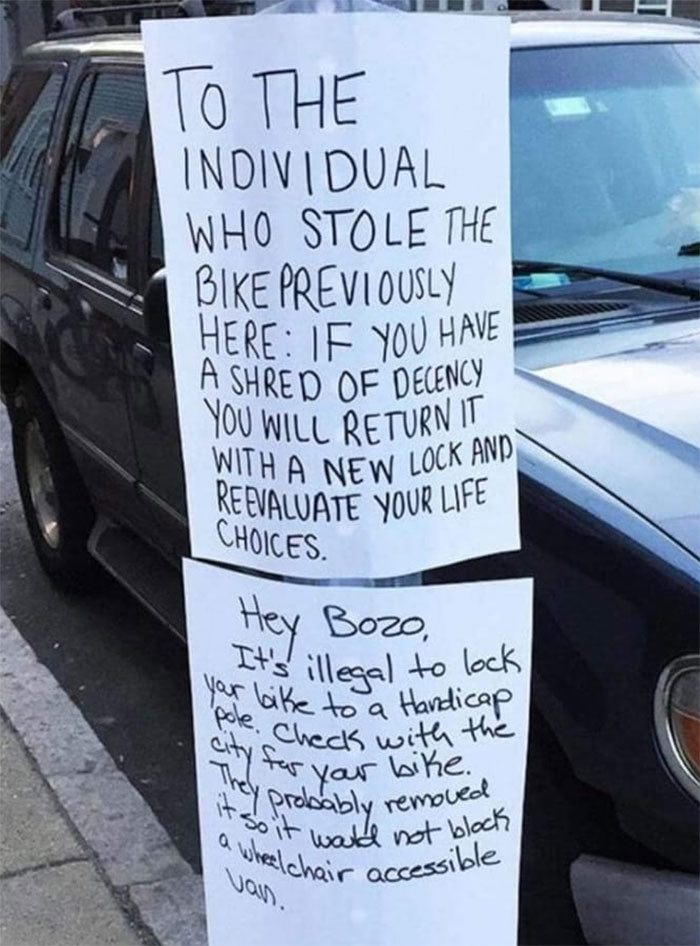 TO THE
INDIVIDUAL
WHO STOLE THE
BIKE PREVIOUSLY
HERE: IF YOU HAVE
A SHRED OF DECENCY
YOU WILL RETURN IT
WITH A NEW LOCK AND
REEVALUATE YOUR LIFE
CHOICES.
Hey Bozo,
It's illegal to lock
your bike to a Handicap
pole. Check with the
city for your bike.
They probably removed
it so it would not block
a wheelchair accessible
van.